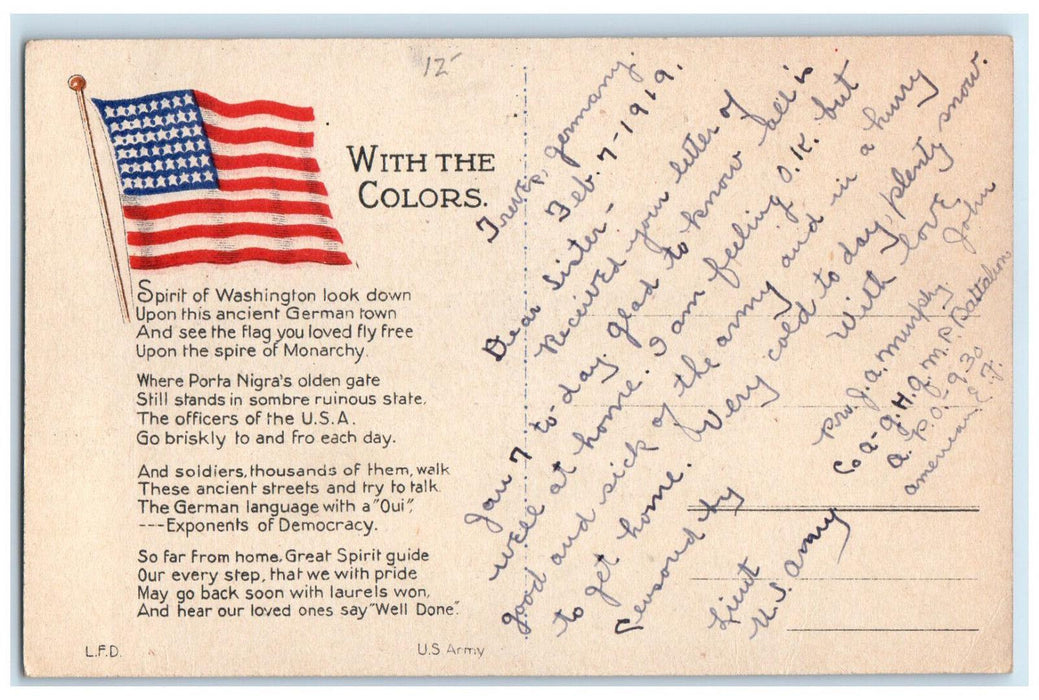 12-
WITH THE
COLORS.
Spirit of Washington look down
Upon this ancient German town
And see the flag you loved fly free
Upon the spire of Monarchy.
Where Porta Nigra's olden gate
Still stands in sombre ruinous state,
The officers of the U.S.A.
Go briskly to and fro each day.
And soldiers, thousands of them, walk
These ancient streets and try to talk
The German language with a "Oui",
---Exponents of Democracy.
So far from home, Great Spirit guide
Our every step, that we with pride
May go back soon with laurels won,
And hear our loved ones say "Well Done".
L.F.D.
U.S. Army
Treves, Germany.
Feb. 7-1919.
Dear Sister-
Received your letter of
Jan 7 to-day glad to know all is
well at home. I am feeling O.K. but
good and sick of the army and in a hurry
to get home. Very cold to day, plenty snow.
With love
John
Pvt. J. A. Murphy.
Co a- G.H.Q. M.P. Battalion
A.P.O.-930
American E.F.
Censord by
Lieut
U.S. Army